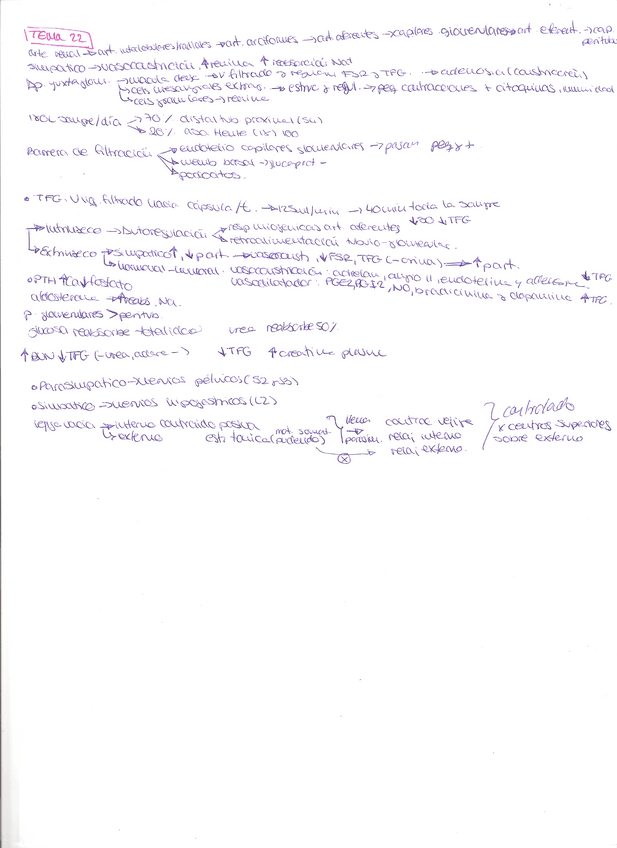 TEMA 22
arte. renal → art. interlobulares/radiales → art. arciformes → art. aferentes → capilares glomerulares → art eferent. → cap. peritub.
simpatico → vasoconstricción, ↑ renina ↑ reabsorción Na+
Ap. yuxtaglom. → macula densa → v filtrado y regulan FSR y TFG. → adenosina (constricción)
→ cels mesangiales extrag. → estruc y regul. → peq contracciones + citoquinas, inmunidad
→ cels granulares → renina
180L sangre/día → 70% distal tubo proximal (54)
→ 20% asa Henle (18) 100
Barrera de filtración → endotelio capilares glomerulares → pasan peq y +
→ memb basal → glucoprot -
→ podocitos.
• TFG: Vliq filtrado hacia cápsula/t. → 125ml/min → 40min toda la sangre
→ Intrínseco → Autoregulación → resp miogénicas art. aferentes ↓80 ↓TFG
→ retroalimentación túbulo-glomerular.
→ Extrínseco → simpatico ↑, ↓ part. → vasoconst, ↓ FSR, TFG (-orina) → ↑ part.
→ hormonal-humoral. vasoconstricción: adrenalin, angio II, endotelina y adenosina ↓ TFG
vasodilatador: PGE2, PGI2, NO, bradicinina y dopamina ↑ TFG.
• PTH ↑ Ca ↓ fosfato
aldosterona → ↑ reabs. Na.
p. glomerulares > peritub
glucosa reabsorbe totalidad urea reabsorbe 50%
↑ BUN ↓ TFG (-urea, aclara -) ↓ TFG ↑ creatina plasma
• Parasimpatico → nervios pélvicos (S2 y S3)
• Simpatico → nervios hipogástricos (L2)
vejiga vacía → interno contraido pasiva
→ externo estr tonica (pudendo) mot. somat.
llena contrac vejiga
parasim. relaj interno
relaj externo.
controlado
x centros superiores
sobre externo